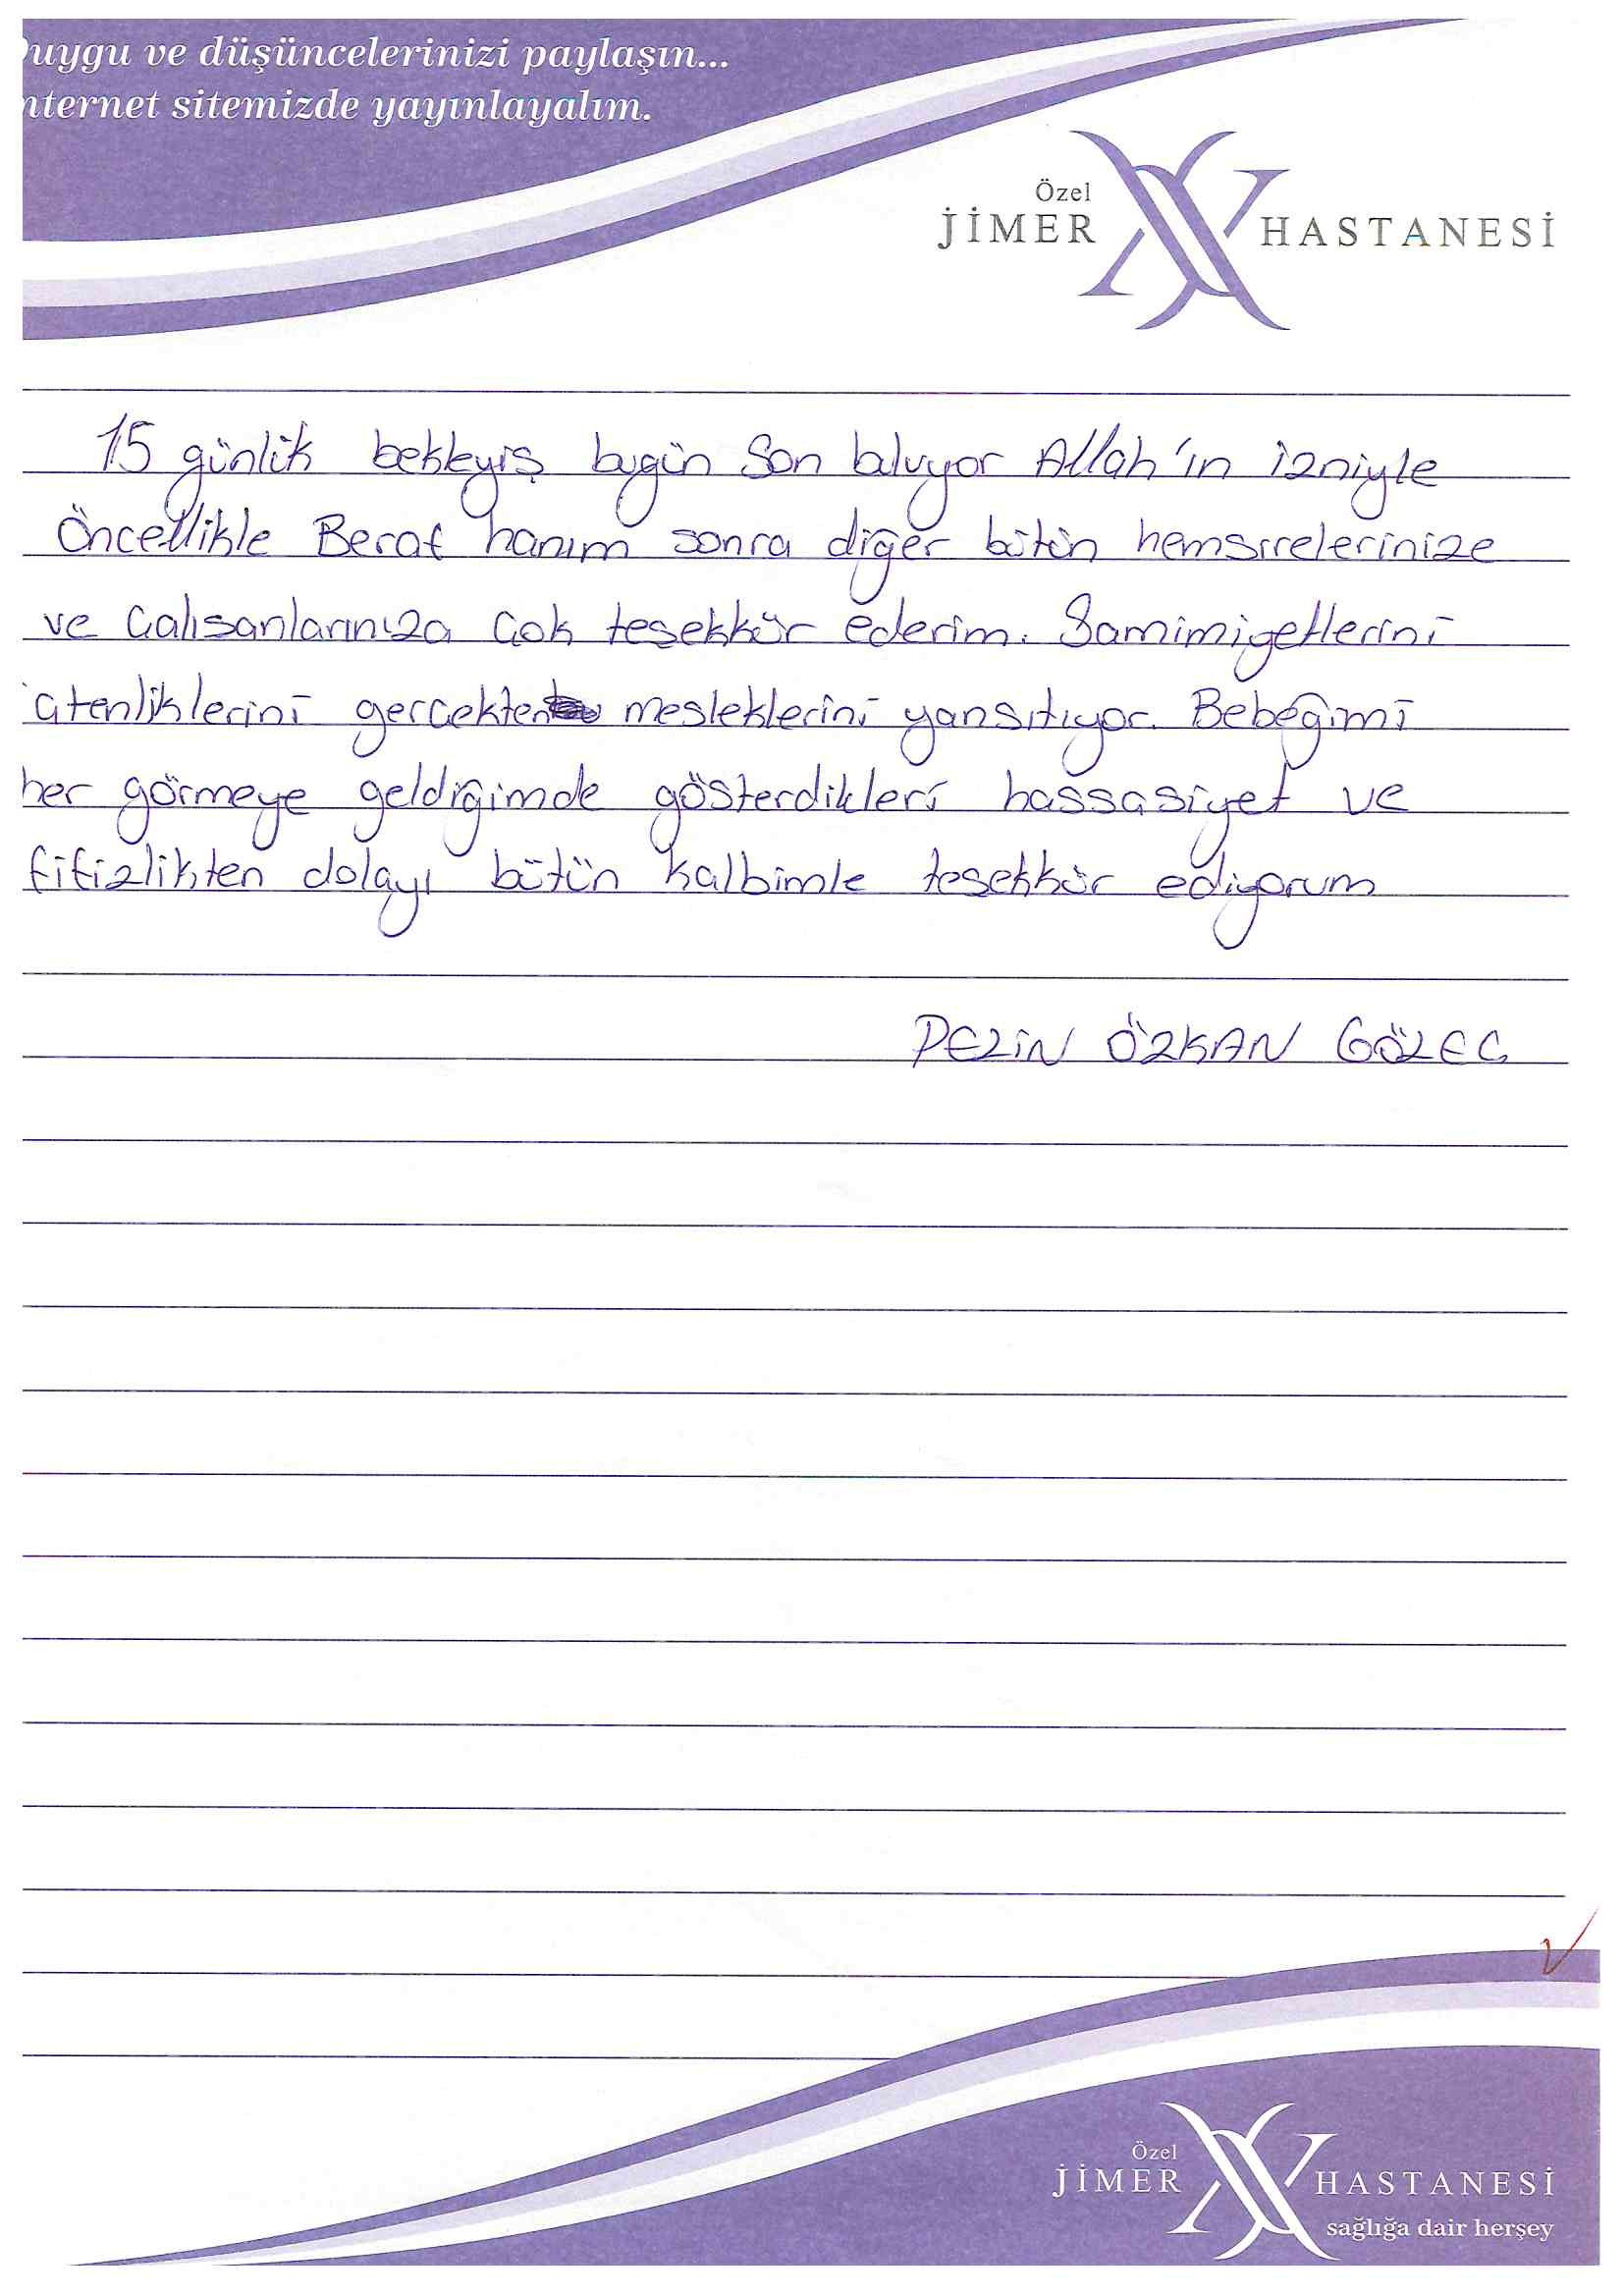 uygu ve düşüncelerinizi paylaşın...
nternet sitemizde yayınlayalım.
Özel
JİMER HASTANESİ
15 günlük bekleyiş bugün son buluyor Allah'ın izniyle
Öncellikle Berat hanım sonra diğer bütün hemsirelerinize
ve Çalısanlarınıza Çok teşekkür ederim. Samimiyetlerini
içtenliklerini gerçekten mesleklerini yansıtıyor. Bebeğimi
her görmeye geldiğimde gösterdikleri hassasiyet ve
titizlikten dolayı bütün kalbimle teşekkür ediyorum
ÖZKAN
Özel
JİMER HASTANESİ
sağlığa dair herşey